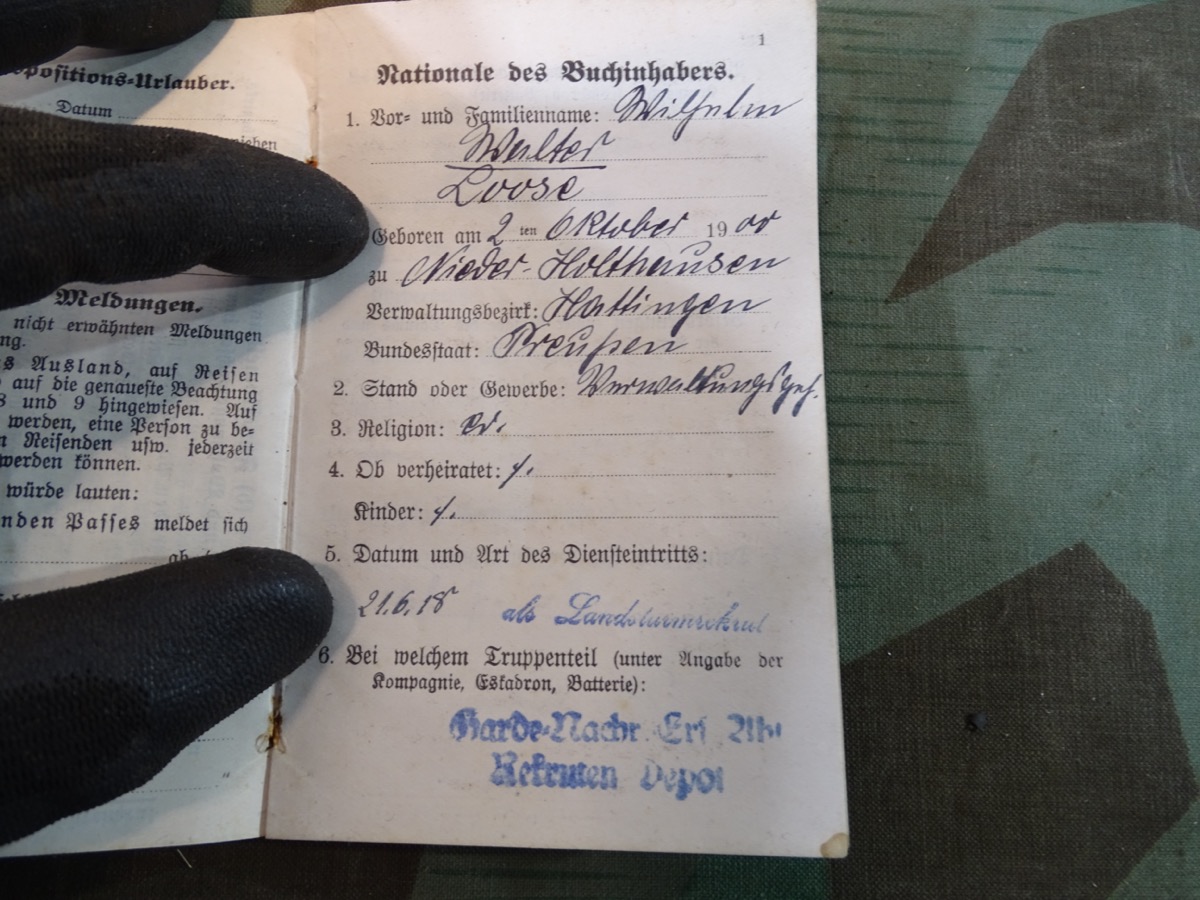 positions-Urlauber.
Datum
ziehen
Meldungen.
nicht erwähnten Meldungen
ng.
s Ausland, auf Reisen
auf die genaueste Beachtung
8 und 9 hingewiesen. Auf
werden, eine Person zu be-
n Reisenden usw. jederzeit
werden können.
würde lauten:
nden Passes meldet sich
ab
1
Nationale des Buchinhabers.
1. Vor- und Familienname: Wilhelm
Walter
Loose
Geboren am 2 ten Oktober 1900
zu Nieder-Holthausen
Verwaltungsbezirk: Hattingen
Bundesstaat: Preußen
2. Stand oder Gewerbe: Verwaltungsgeh.
3. Religion: ev.
4. Ob verheiratet: /.
Kinder: /.
5. Datum und Art des Diensteintritts:
21.6.18 als Landsturmrekrut
6. Bei welchem Truppenteil (unter Angabe der
Kompagnie, Eskadron, Batterie):
Garde-Nachr. Ers. Abt.
Rekruten Depot